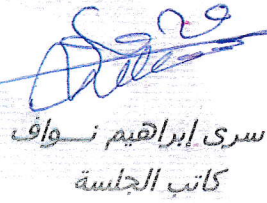 سرى إبراهيم نـــواف
كاتب الجلسة